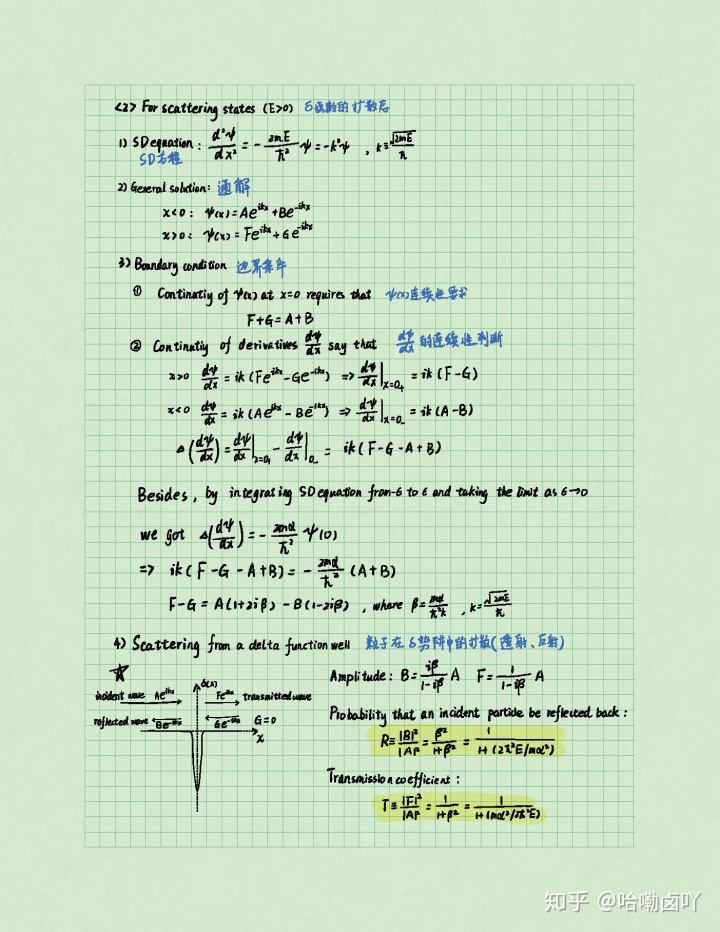 <2> For scattering states (E>0) δ函数的扩散态
1) SD equation: d²ψ/dx² = - 2mE/ħ² ψ = -k²ψ , k ≡ √2mE/ħ
SD方程
2) General solution: 通解
x<0: ψ(x) = Ae^{ikx} + Be^{-ikx}
x>0: ψ(x) = Fe^{ikx} + Ge^{-ikx}
3) Boundary condition 边界条件
① Continutiy of ψ(x) at x=0 requires that ψ(x)连续性要求
F+G=A+B
② Continutiy of derivatives dψ/dx say that dψ/dx 的连续性判断
x>0 dψ/dx = ik (Fe^{ikx} - Ge^{-ikx}) => dψ/dx |x=0+ = ik (F-G)
x<0 dψ/dx = ik (Ae^{ikx} - Be^{-ikx}) => dψ/dx |x=0- = ik (A-B)
Δ(dψ/dx) = dψ/dx |x=0+ - dψ/dx |0- = ik (F-G-A+B)
Besides, by integrating SD equation from -ϵ to ϵ and taking the limit as ϵ→0
we got Δ(dψ/dx) = - 2mα/ħ² ψ(0)
=> ik (F-G-A+B) = - 2mα/ħ² (A+B)
F-G = A(1+2iβ) - B(1-2iβ) , where β = mα/ħ²k , k = √2mE/ħ
4) Scattering from a delta function well 粒子在δ势阱中的扩散(透射、反射)
☆
incident wave Ae^{ikx}
reflected wave Be^{-ikx}
δ(x)
Fe^{ikx} transmitted wave
Ge^{-ikx} G=0
x
Amplitude: B = iβ/1-iβ A F = 1/1-iβ A
Probability that an incident particle be reflected back:
R ≡ |B|²/|A|² = β²/1+β² = 1/1+(2ħ²E/mα²)
Transmission coefficient:
T ≡ |F|²/|A|² = 1/1+β² = 1/1+(mα²/2ħ²E)
知乎 @哈嘞卤吖